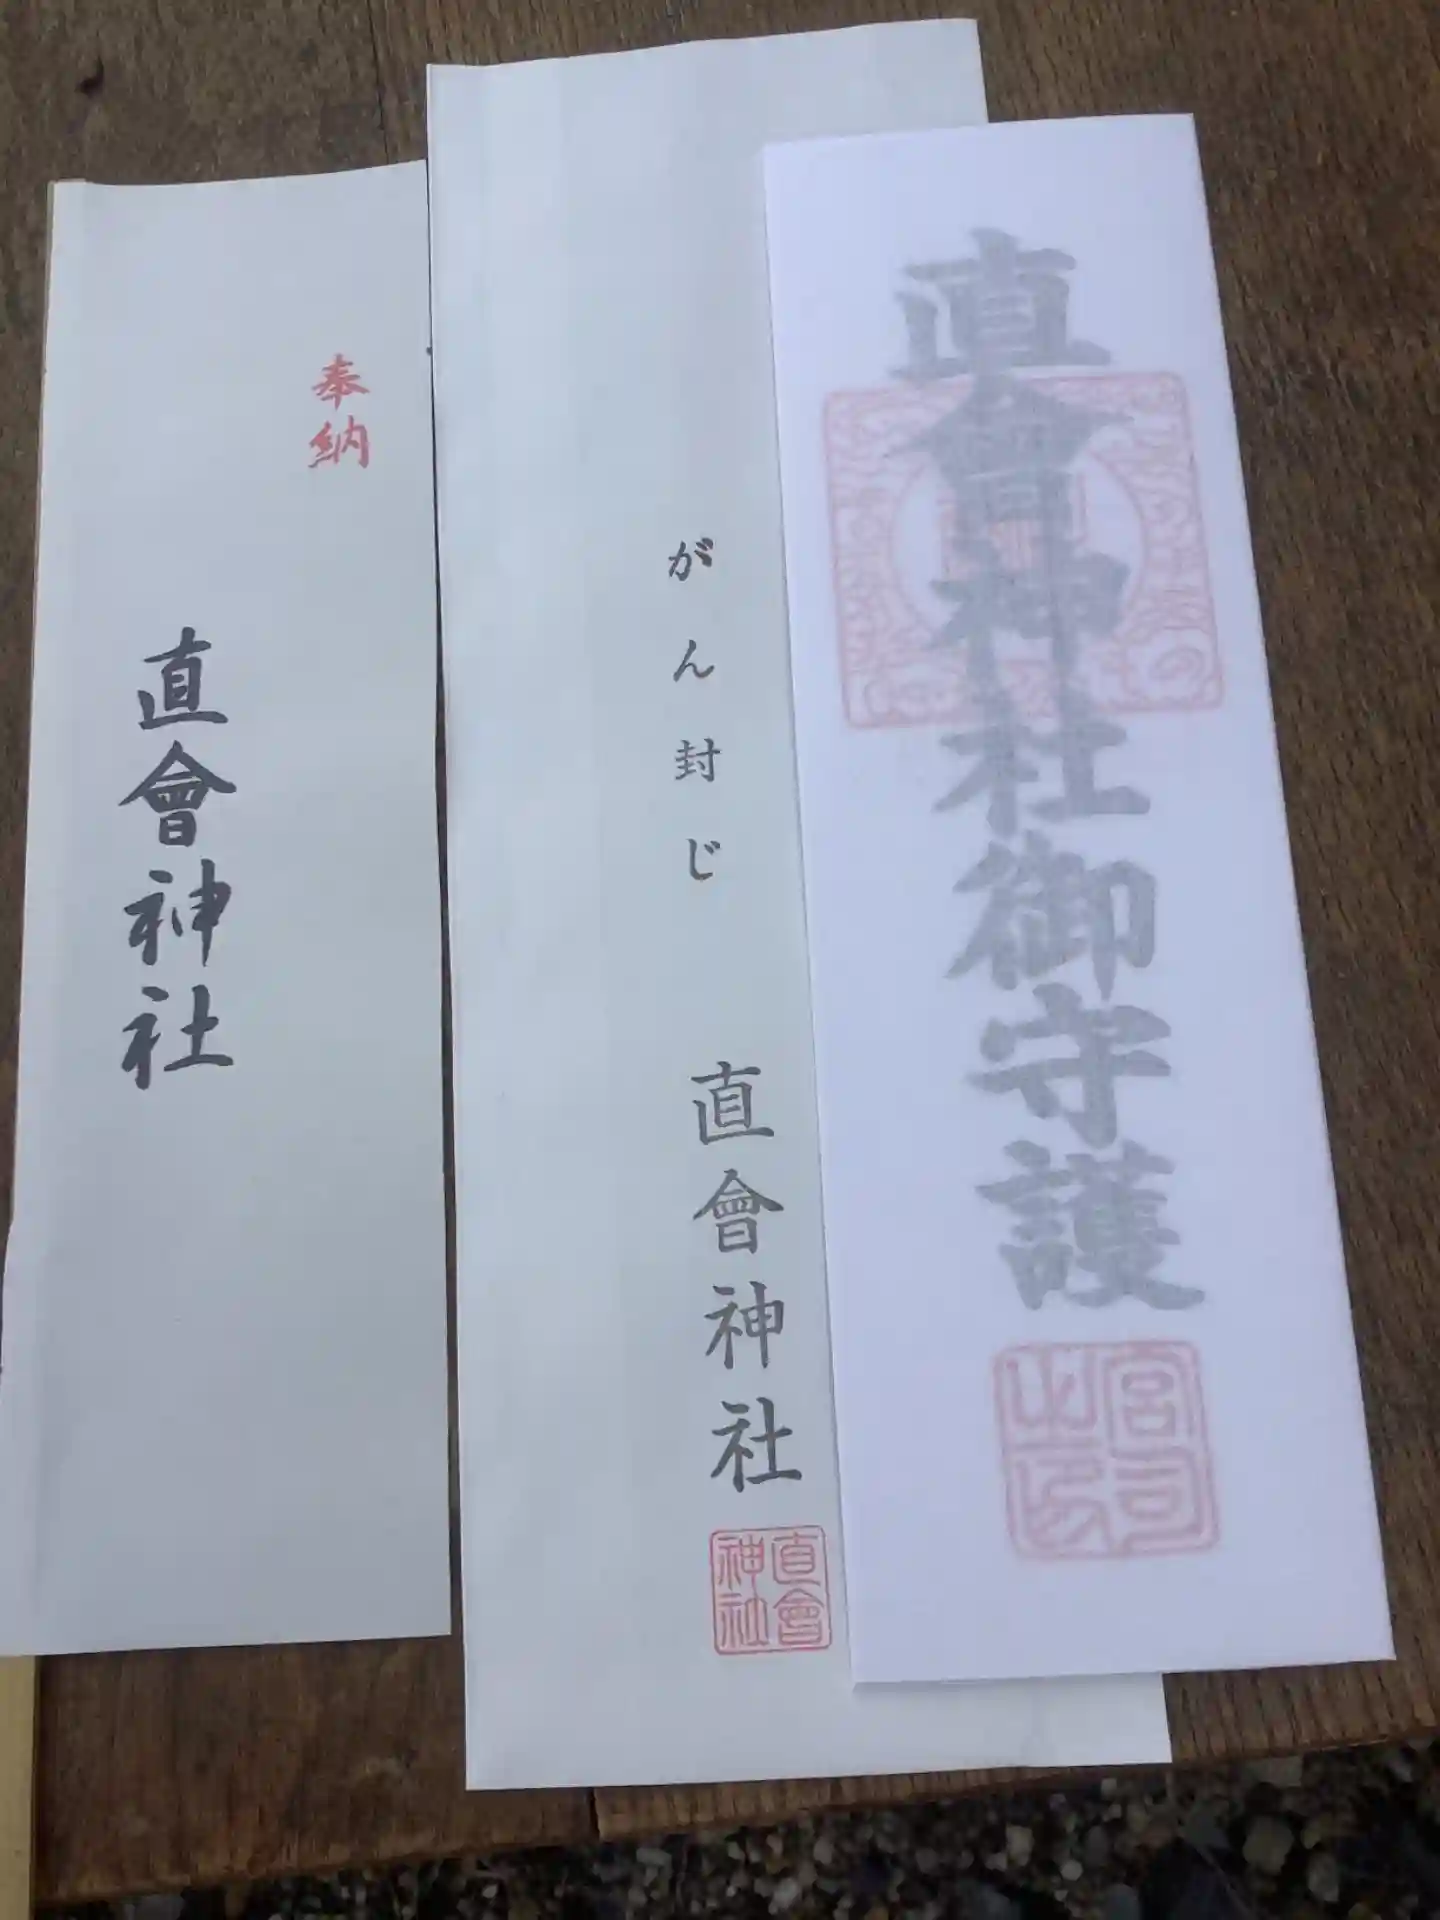 奉納
直會神社
がん封じ
直會神社
直會神社
直會神社御守護
宮司之印